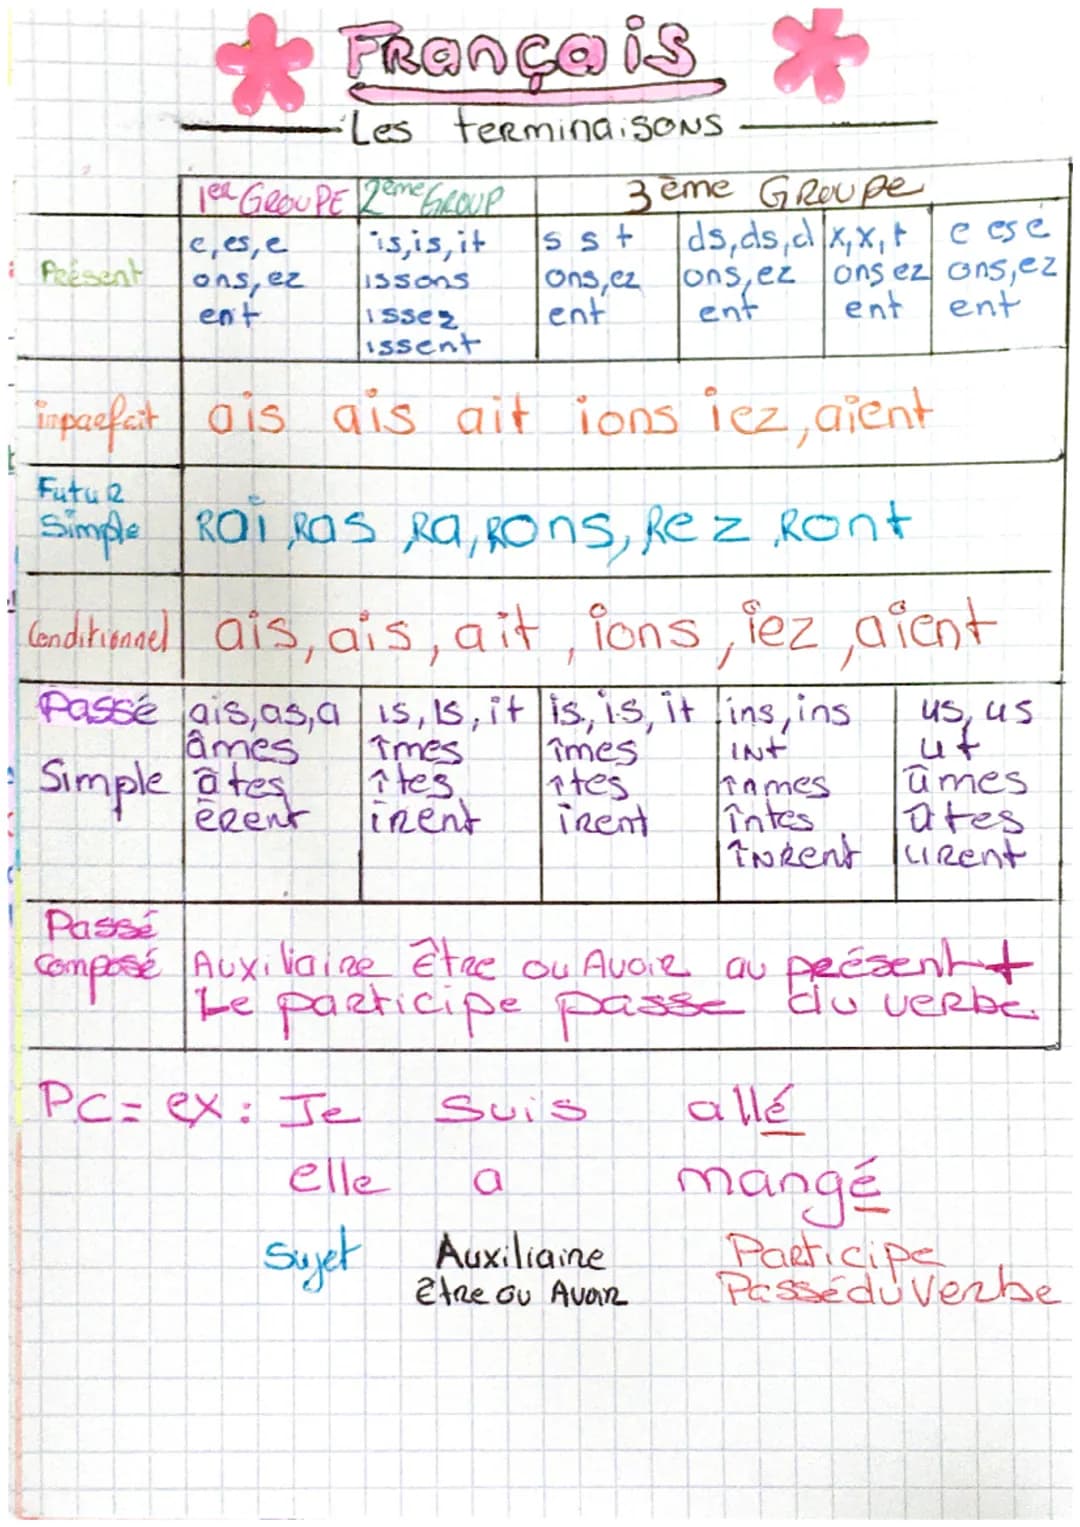 Français
Les terminaisons
1er GROUPE 2ème GROUP 3ème Groupe
Présent
e, es, e
ons, ez
ent
is, is, it
issons
issez
issent
s s t
ons, ez
ent
ds, ds, d
ons, ez
ent
x, x, t
ons ez
ent
e es e
ons, ez
ent
imparfait
ais ais ait ions iez, aient
Futur
Simple
Rai, Ras, Ra, Rons, Rez, Ront
Conditionnel
ais, ais, ait, ions, iez, aient
Passé
Simple
ais, as, a
âmes
âtes
èrent
is, is, it
îmes
îtes
irent
is, is, it
îmes
îtes
irent
ins, ins
int
înmes
întes
înrent
us, us
ut
ûmes
ûtes
urent
Passé
composé
Auxiliaire Être ou Avoir au présent +
Le participe passe du verbe.
PC = ex : Je suis allé
elle a mangé
Sujet Auxiliaire Participe
Être ou Avoir Passé du Verbe